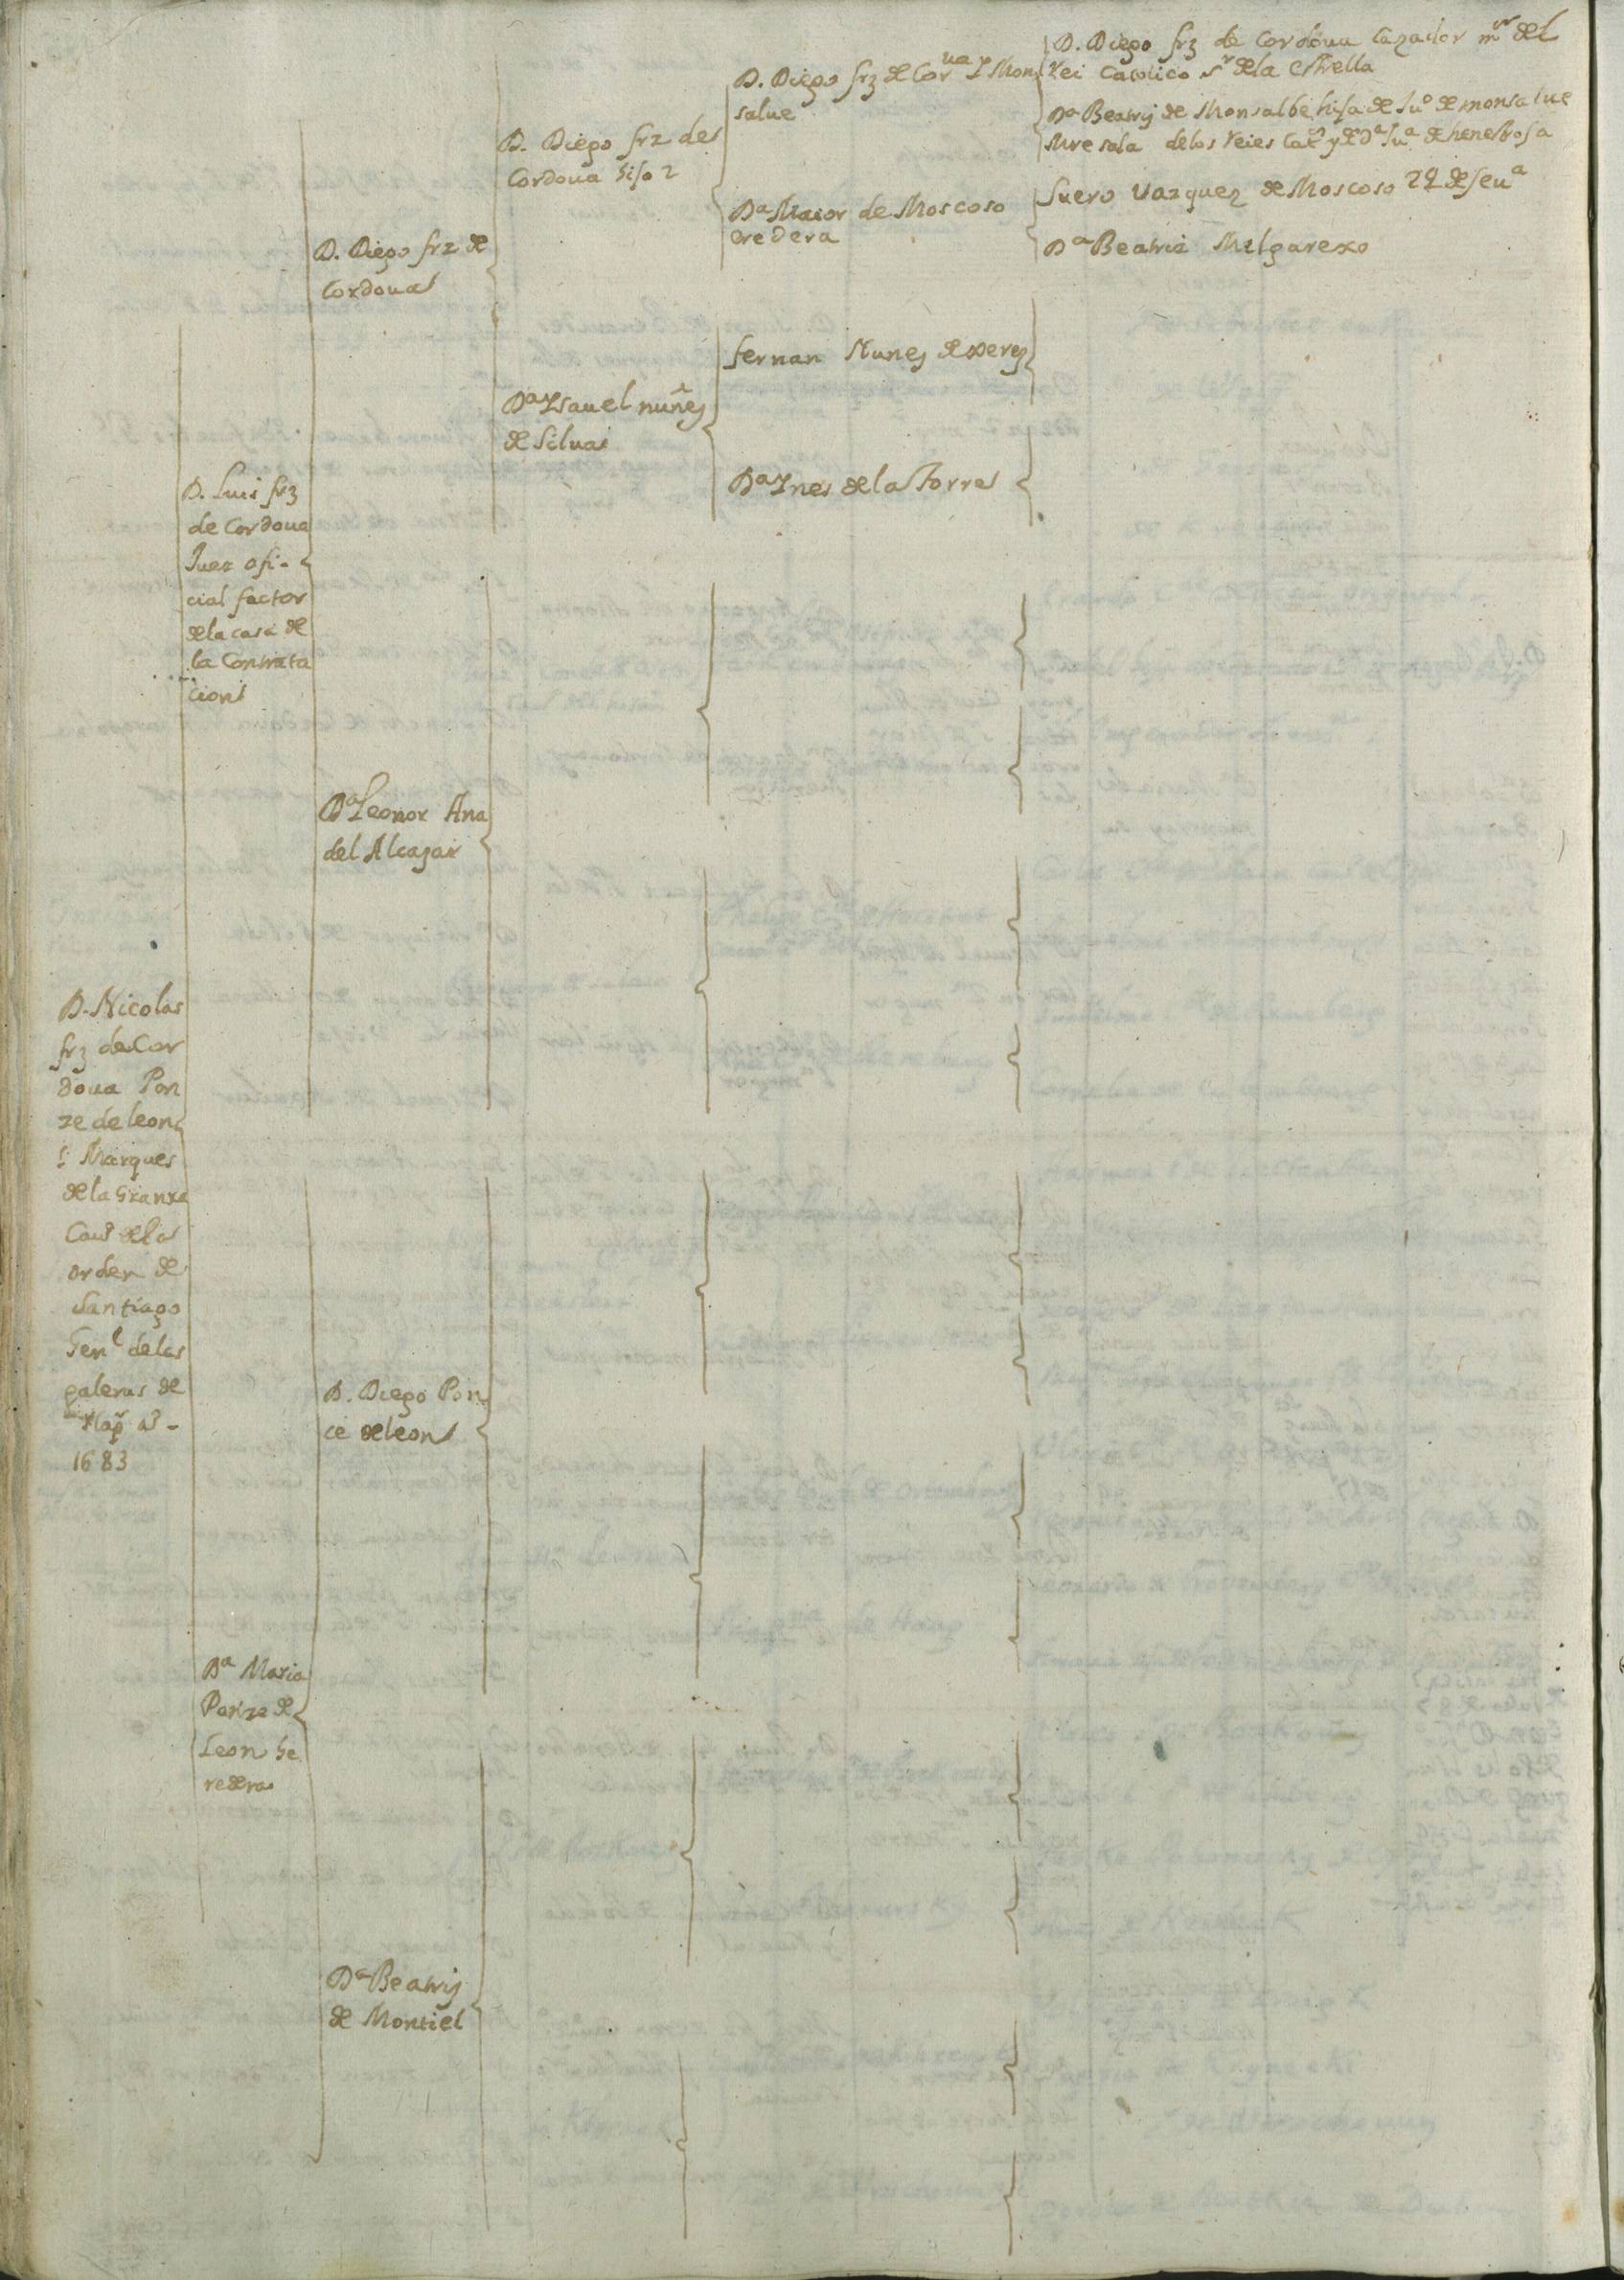 D. Nicolas
frz de Cor
doua Pon
ze de leon
1 Marques
de la Granxa
Cauº de la
orden de
Santiago
Genˡ de las
galeras de
Napˢ aº -
1683
D. Luis frz
de Cordoua
Juez ofi-
cial factor
de la casa de
la Contrata
cion
Dª Maria
Ponze de
Leon he
redera
D. Diego frz de
Cordoua
Dª Leonor Ana
del Alcazar
D. Diego Pon
ce de leon
Dª Beatriz
de Montiel
D. Diego frz de
Cordoua hijo 2
Dª Ysauel nuñez
de Silua
D. Diego frz de Corᵘᵃ y Mon
salue
Dª Maior de Moscoso
eredera
fernan Nunez de xerez
Dª Ynes de la Torre
D. Diego frz de Cordoua cazador mʳ del
Rei Catolico sʳ de la Estrella
Dª Beatriz de Monsalbe hija de Juº de monsalue
Mre sala de los Reies Catˢ y de Dª Juª de henestrosa
Suero Vazquez de Moscoso 24 de Seuª
Dª Beatriz Melgarexo